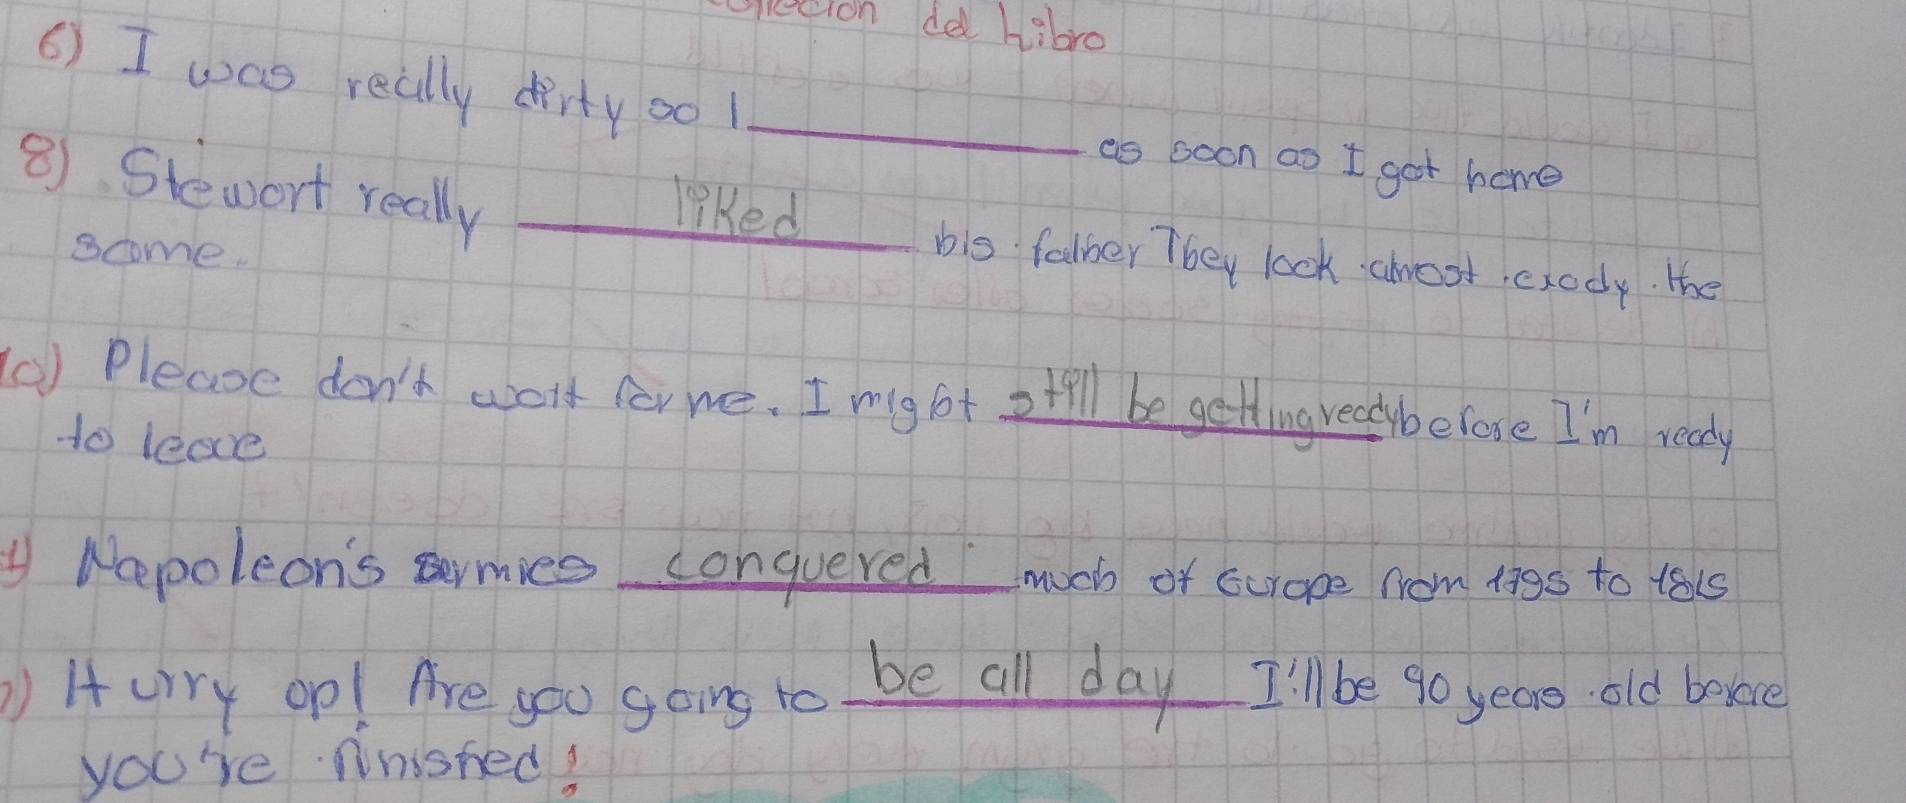 del Libro
6) I was really dirty so I ________ as soon as I got home
8) Stewort really liked his father They look almost exactly the
same.
10) Please don't wait for me. I might still be getting ready before I'm ready
to leave
Napoleon's armies conquered much of Europe from 1795 to 1815
Hurry up! Are you going to be all day I'll be 90 years old before
you're finished!